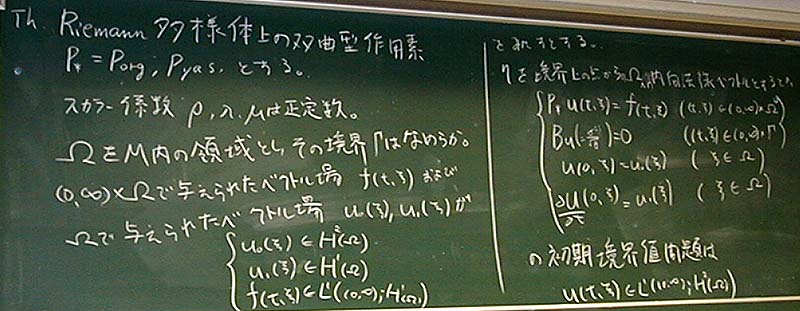 Th. Riemann 多様体上の双曲型作用素
P* = Porg, Pyas, とする。
スカラー係数 ρ, λ, μは正定数。
ΩをM内の領域とし その境界Γはなめらか。
(0,∞)×Ωで与えられたベクトル場 f(t,ξ) および
Ωで与えられたベクトル場 u₀(ξ), u₁(ξ)が
u₀(ξ)∈H²(Ω)
u₁(ξ)∈H¹(Ω)
f(t,ξ)∈L¹((0,∞);H¹(Ω))
をみたすとする。
ηを境界上の点からΩ内向法線ベクトルとするとき
P* u(t,ξ) = f(t,ξ) ((t,ξ)∈(0,∞)×Ω)
= 0 ((t,ξ)∈(0,∞)×Γ)
u(0,ξ) = u₀(ξ) (ξ∈Ω)
∂u/∂t (0,ξ) = u₁(ξ) (ξ∈Ω)
の初期境界値問題は